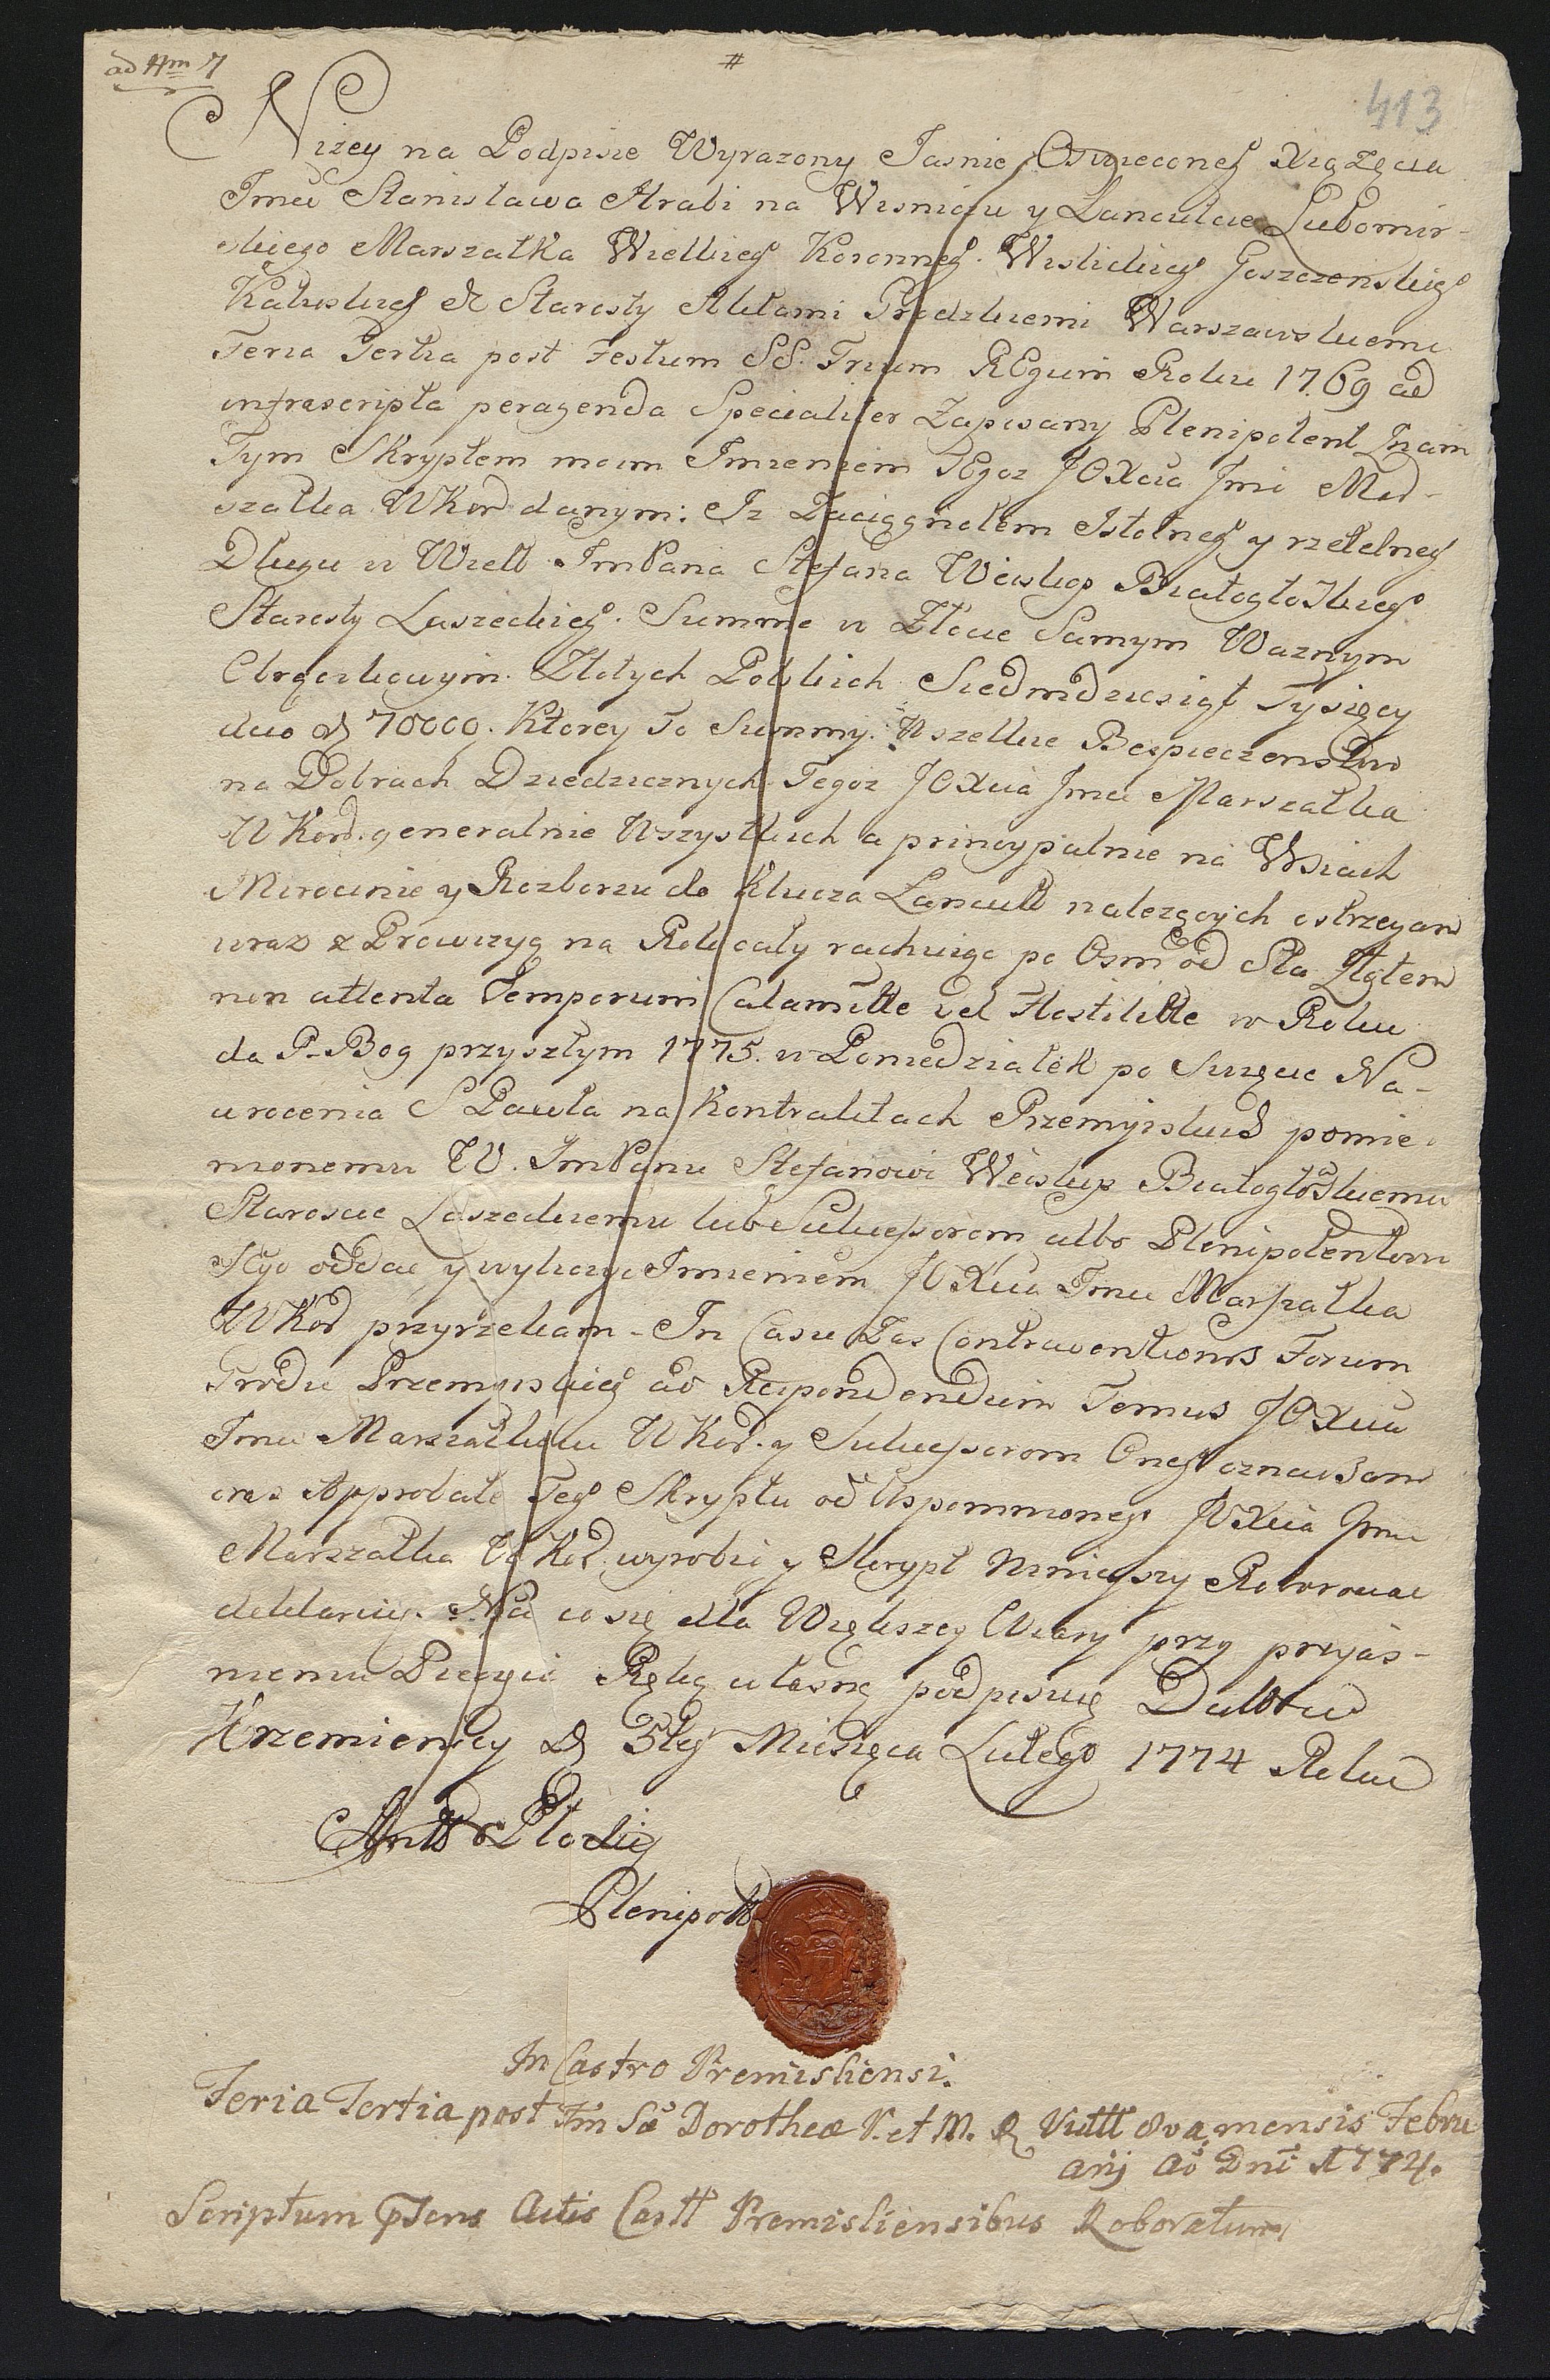 ad Nm 7
#
413
Niżey na Podpisie Wyrazony Jasnie Oswieconeg Xiążęcia
Jmci Stanisława Hrabi na Wisniczu y Lancucie Lubomir-
skiego Marszałka Wielkieg Koronneg. Wislickieg Goszczenskieg
Kałuskieg &c Starosty Aktami Grodzkiemi Warszawskiemi
Feria Tertia post Festum SS. Trium REgum Roku 1769 ad
infrascripta peragenda Specialiter Zapisany Plenipotent Znam
Tym Skryptem moim Jmieniem TEgoż JOXcia Jmci Mar-
szałka WKor danym: Jż Zaciągnołem Jstotneg y rzetelneg
Długu u Wiel JmPana Stefana Białogłoskiego
Starosty Laszeckieg. Summę w Złocie Samym Waznym
Obrączkowym. Złotych Polskich Siedmdziesiąt Tysięcy
dico 70000. Ktorey to Summy. Wszelkie Bespieczenstwo
na Dobrach Dziedzicznych Tegoż JOXcia Jmci Marszałka
WKor. generalnie Wszystkich a pryncypalnie na Wsiach
Mirocinie y Rozborzu do Klucza Lancutt nalezących ostrzegam
wraz z Prowizyą na Rok cały rachuiąc po Osm od Sta
non attenta Temporum Calamitte vel Hostilitte w Roku
da P. Bog przyszłym 1775. w Poniedziałek po Swięcie Na-
wrocenia S Pawła na Kontraktach Przemyskich pomie-
nionemu W. JmPanu Stefanowi Białogłoskiemu
Staroscie Laszeckiemu lub Sukcessorom albo Plenipotentom
Jego oddac y wyliczyc Jmieniem JOXcia Jmci Marszałka
WKor przyrzekam. In Casu Zas Contraventionis Forum
Grodu Przemyskieg ad Respondendum Temuż JOXciu
Jmci Marszałkowi WKor. y Sukcessorom Oneg oznaczam
oraz Approbatę Teg Skryptu od Wspomnioneg JOXcia Jmci
Marszałka WKor. wyrobić y Skrypt Ninieyszy Roborowac
deklaruię. Na co się dla Większey Wiary przy przyias-
nieniu Pieczęci Ręką własną podpisuię Datt w
Krzemienicy 5teg Miesiąca Lutego 1774 Roku

Plenipott
In Castro Premisliensi.
Feria Tertia post Fm Sæ Dorotheæ V. et M. 8va mensis Febru
arij Aō Dni 1774.
Scriptum psens Actis Castt Premisliensibus Roboratum